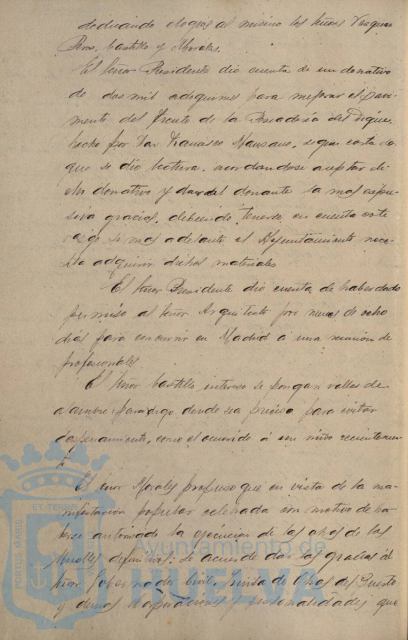 dedicando elogios al mismo los señores Vazquez
Pons, Castillo y Morales.
El señor Presidente dio cuenta de un donativo
de dos mil adoquines para mejorar el pavi-
mento del frente de la Pescadería del Dique,
hecho por Don Francisco Manzano, segun carta de
que se dio lectura, acordandose aceptar di-
cho donativo y dar al donante la mas expre-
siva gracias, debiendo tenerse en cuenta este
rasgo si mas adelante el Ayuntamiento nece-
sita adquirir dichos materiales
El señor Presidente dio cuenta de haber dado
permiso al señor Arquitecto por menos de ocho
dias para concurrir en Madrid á una reunion de
profesionales
El señor Castillo intereso se pongan vallas de
alambre donde sea preciso para evitar
despeñamiento, como el ocurrido á un niño recientemen
te
El señor Morales propuso que en vista de la ma-
nifestación popular celebrada con motivo de ha-
berse autorizado la ejecucion de las obras de los
Muelles definitivos, se acuerde dar las gracias al
señor Gobernador Civil, Junta de Obras del Puerto
y demas Corporaciones y personalidades que
PORTUS MARIS ET TERRAE
Ayuntamiento de
HUELVA